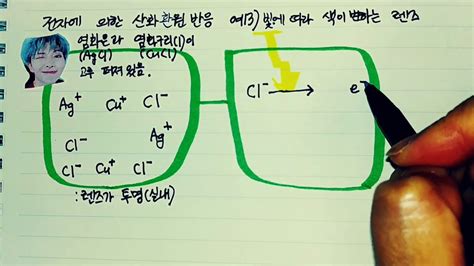 전자에 의한 산화환원 반응 예3) 빛에 따라 색이 변하는 렌즈
염화은과 염화구리(I)이
(AgCl) (CuCl)
고루 퍼져 있음.
Ag⁺ Cu⁺ Cl⁻
Cl⁻ Ag⁺
Cl⁻ Cu⁺ Cl⁻
: 렌즈가 투명(실내)
Cl⁻ → e⁻